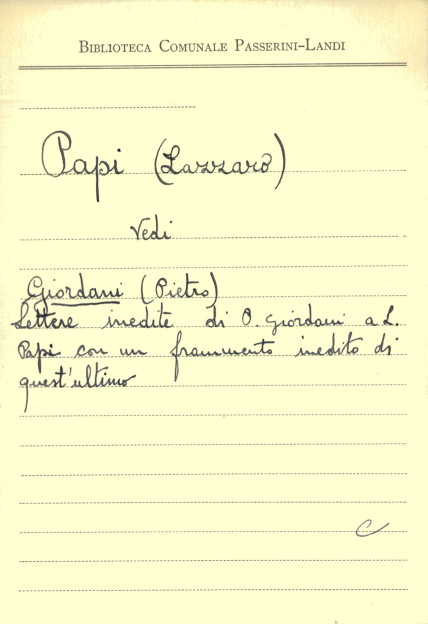 BIBLIOTECA COMUNALE PASSERINI-LANDI
Papi (Lazzaro)
Vedi
Giordani (Pietro)
Lettere inedite di P. Giordani a L.
Papi con un frammento inedito di
quest'ultimo
C